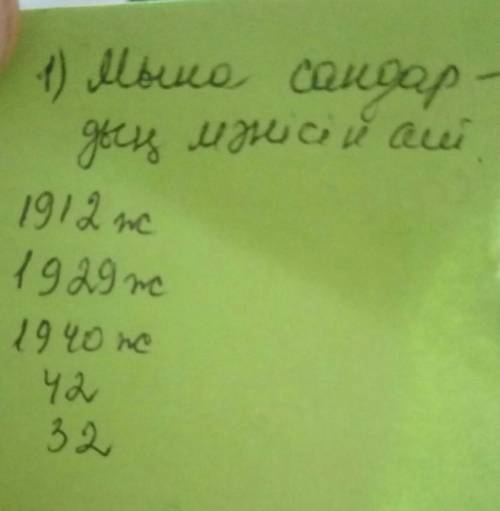 1) Мына сандар -
дың мәнісін аш
1912 ж
1929 ж
1940 ж
42
32